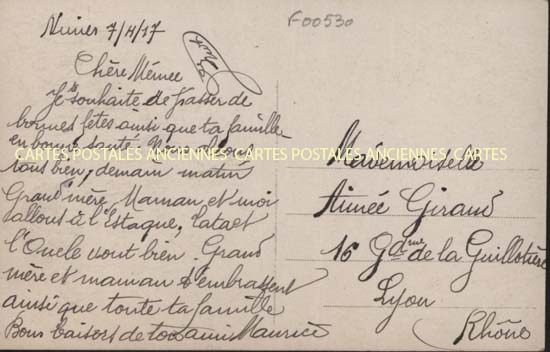 Nimes 7/4/17
F00530
Chère Mémee
Je te souhaite de passer de
bonnes fêtes ainsi que ta famille
en bonne santé. Nous allons
tous bien, demain matin
Grand'mère, Maman et moi
allons à l'Estaque, Tata et
l'Oncle vont bien. Grand
mère et maman t'embrassent
ainsi que toute ta famille
Bons baisers de ton ami Maurice
Mademoiselle
Aimée Giraud
16 Gde rue de la Guillotière
Lyon
Rhône
CARTES POSTALES ANCIENNES CARTES POSTALES ANCIENNES CARTES